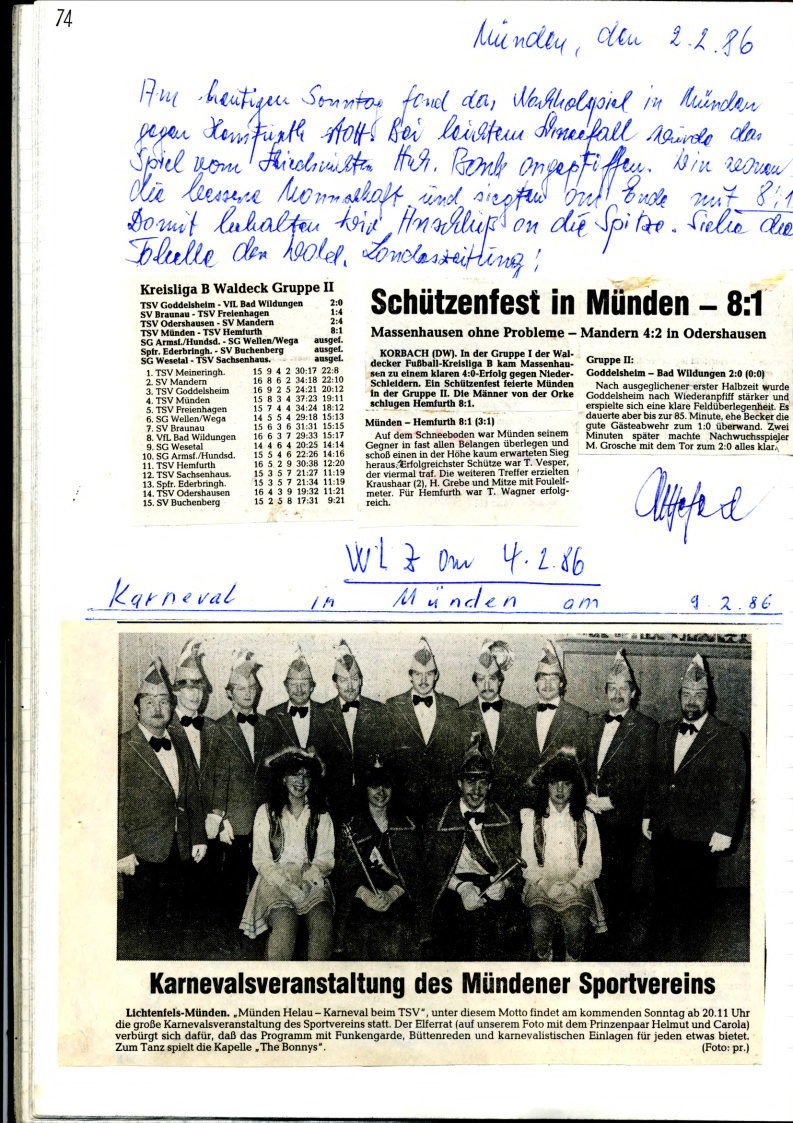 74
Münden, den 2.2.86
Am heutigen Sonntag fand das Nachholspiel in Münden
gegen Hemfurth statt. Bei leichtem Schneefall wurde das
Spiel vom Schr. Bank angepfiffen. Wir waren
die bessere Mannschaft und siegten am Ende mit 8:1
Damit behalten wir Anschluß an die Spitze. Siehe die
Tabelle der Wald. Landeszeitung!
Kreisliga B Waldeck Gruppe II
TSV Goddelsheim - VfL Bad Wildungen 2:0
SV Braunau - TSV Freienhagen 1:4
TSV Odershausen - SV Mandern 2:4
TSV Münden - TSV Hemfurth 8:1
SG Armsf./Hundsd. - SG Wellen/Wega ausgef.
Spfr. Ederbringh. - SV Buchenberg ausgef.
SG Wesetal - TSV Sachsenhaus. ausgef.
1. TSV Meineringh. 15 9 4 2 30:17 22:8
2. SV Mandern 16 8 6 2 34:18 22:10
3. TSV Goddelsheim 16 9 2 5 24:21 20:12
4. TSV Münden 15 8 3 4 37:23 19:11
5. TSV Freienhagen 15 7 4 4 34:24 18:12
6. SG Wellen/Wega 14 5 5 4 29:18 15:13
7. SV Braunau 15 6 3 6 31:31 15:15
8. VfL Bad Wildungen 16 6 3 7 29:33 15:17
9. SG Wesetal 14 4 6 4 20:25 14:14
10. SG Armsf./Hundsd. 15 5 4 6 22:26 14:16
11. TSV Hemfurth 16 5 2 9 30:38 12:20
12. TSV Sachsenhaus. 15 3 5 7 21:27 11:19
13. Spfr. Ederbringh. 15 3 5 7 21:34 11:19
14. TSV Odershausen 16 4 3 9 19:32 11:21
15. SV Buchenberg 15 2 5 8 17:31 9:21
Schützenfest in Münden – 8:1
Massenhausen ohne Probleme – Mandern 4:2 in Odershausen
KORBACH (DW). In der Gruppe I der Wal-
decker Fußball-Kreisliga B kam Massenhau-
sen zu einem klaren 4:0-Erfolg gegen Nieder-
Schleidern. Ein Schützenfest feierte Münden
in der Gruppe II. Die Männer von der Orke
schlugen Hemfurth 8:1.
Münden – Hemfurth 8:1 (3:1)
Auf dem Schneeboden war Münden seinem
Gegner in fast allen Belangen überlegen und
schoß einen in der Höhe kaum erwarteten Sieg
heraus. Erfolgreichster Schütze war T. Vesper,
der viermal traf. Die weiteren Treffer erzielten
Kraushaar (2), H. Grebe und Mitze mit Foulelf-
meter. Für Hemfurth war T. Wagner erfolg-
reich.
Gruppe II:
Goddelsheim – Bad Wildungen 2:0 (0:0)
Nach ausgeglichener erster Halbzeit wurde
Goddelsheim nach Wiederanpfiff stärker und
erspielte sich eine klare Feldüberlegenheit. Es
dauerte aber bis zur 85. Minute, ehe Becker die
gute Gästeabwehr zum 1:0 überwand. Zwei
Minuten später machte Nachwuchsspieler
M. Grosche mit dem Tor zum 2:0 alles klar.
WLZ am 4.2.86
Karneval in Münden am 9.2.86
Karnevalsveranstaltung des Mündener Sportvereins
Lichtenfels-Münden. „Münden Helau – Karneval beim TSV“, unter diesem Motto findet am kommenden Sonntag ab 20.11 Uhr
die große Karnevalsveranstaltung des Sportvereins statt. Der Elferrat (auf unserem Foto mit dem Prinzenpaar Helmut und Carola)
verbürgt sich dafür, daß das Programm mit Funkengarde, Büttenreden und karnevalistischen Einlagen für jeden etwas bietet.
Zum Tanz spielt die Kapelle „The Bonnys“. (Foto: pr.)